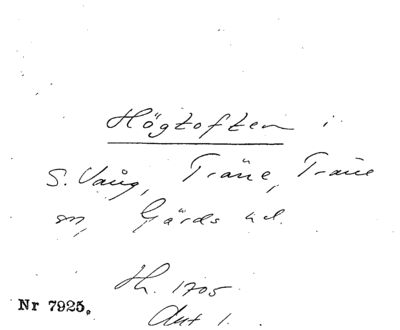 Högtoften i
S. Vång, Träne, Träne
sn, Gärds hd.
Hh. 1705
Akt 1.
Nr 7925.